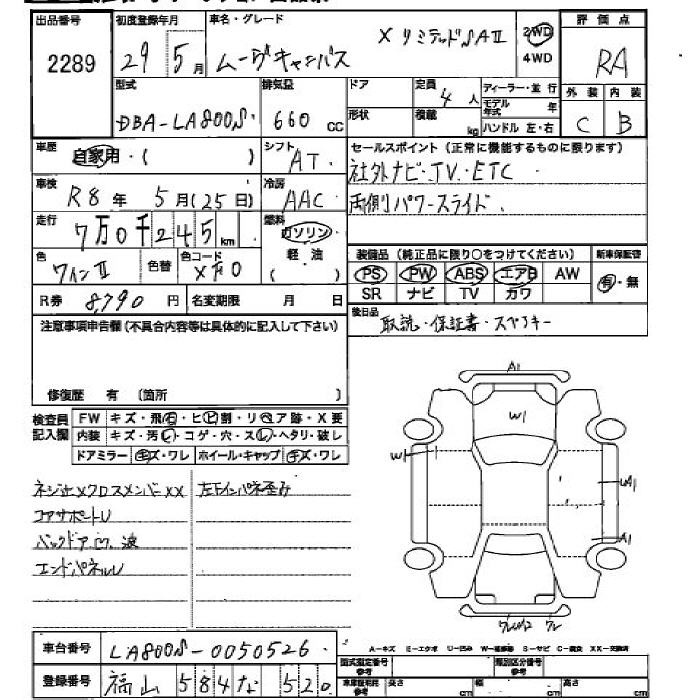 出品番号 初度登録年月 車名・グレード 評価点
2289 29年5月 ムーヴキャンバス X リミテッドSAⅡ 2WD 4WD RA
型式 排気量 ドア 定員 ディーラー・並行 外装 内装
DBA-LA800S 660 cc 4人 モデル年式 年 C B
形状 積載 kg ハンドル 左・右
車歴 自家用・( ) シフト AT セールスポイント(正常に機能するものに限ります)
社外ナビ・TV・ETC
車検 R8年5月(25日) 冷房 AAC 両側パワースライド
走行 7万0千245km 燃料 ガソリン 軽油 ( )
装備品(純正品に限り○をつけてください) 新車保証書
色 ワインⅡ 色替 色コード PS PW ABS エアB AW 有・無
R券 8,790円 名変期限 月 日 SR ナビ TV カワ
注意事項申告欄(不具合内容等は具体的に記入して下さい) 後日品 取説・保証書・スペアキー
修復歴 有 (箇所 )
検査員記入欄 FW キズ・飛石・ヒビ割・リペア跡・X要
内装 キズ・汚レ・コゲ・穴・スレ・ヘタリ・破レ
ドアミラー キズ・ワレ ホイール・キャップ キズ・ワレ
A1
W1
W1
A1
ネジ止メクロスメンバーXX 左下インパネ歪み
コアサポートU
バックドア
エンドパネルU
車台番号 LA800S-0050526
登録番号 福山 584 な 520
A-キズ E-エクボ U-凹み W-補修跡 S-サビ C-腐食 XX-交換済
型式指定番号 参考 類別区分番号 参考
車庫証明用 参考 長さ cm 幅 cm 高さ cm